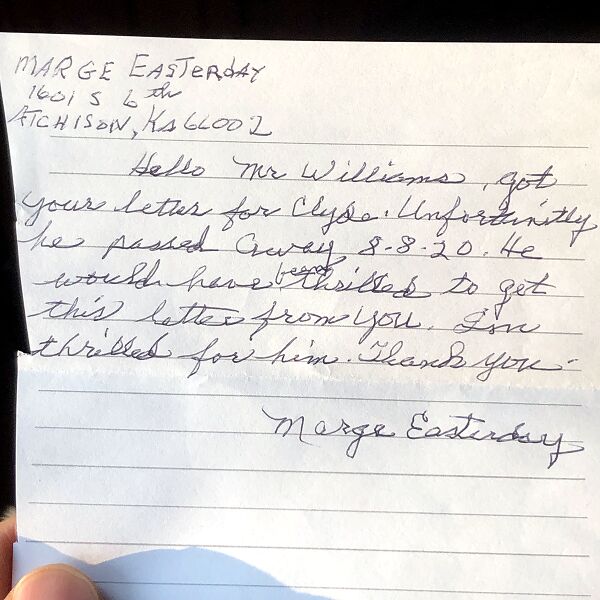 MARGE EASTERDAY
1601 S 6th
ATCHISON, KS 66002
Hello Mr Williams, got
your letter for Clyde. Unfortinitly
he passed away 8-8-20. He
would have been thrilled to get
this letter from you. I'm
thrilled for him. Thank you-
Marge Easterday